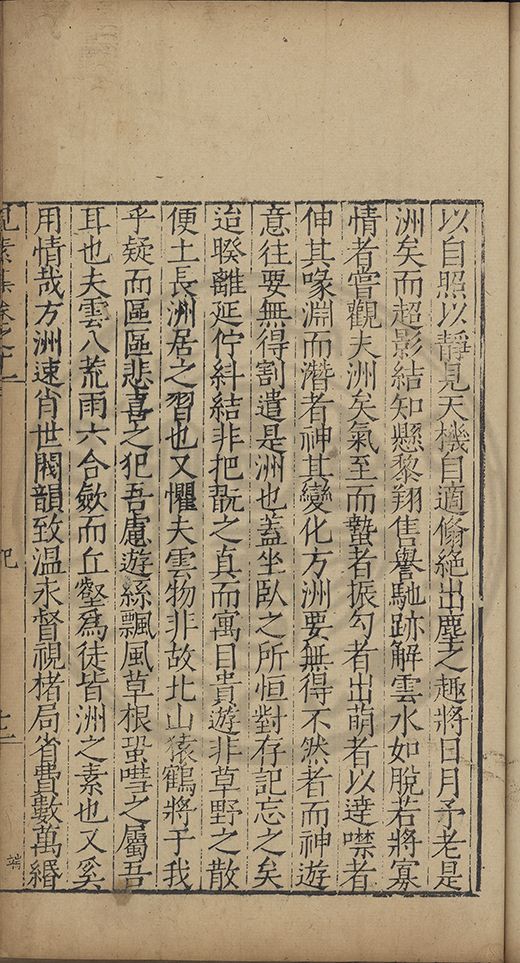 以自照以靜見天機自適翛絶出塵之趣將日月予老是
洲矣而超影結知懸黎翔售譽馳跡解雲水如脫若將寡
情者嘗觀夫洲矣氣至而蟄者振勾者出萌者以達噤者
伸其喙淵而潛者神其變化方洲要無得不然者而神遊
意往要無得割遣是洲也蓋坐臥之所恒對存記忘之矣
迨暌離延佇紏結非把翫之真而寓目貴遊非草野之散
便土長洲居之習也又懼夫雲物非故北山猿鶴將于我
乎疑而區區悲喜之犯吾慮遊絲飄風草根蛩嘒之屬吾
耳也夫雲八荒雨六合歛而丘壑爲徒皆洲之素也又奚
用情哉方洲速肖世閥韻致温永督視楮局省費數萬緡
見素集卷之十一
記
十二
端